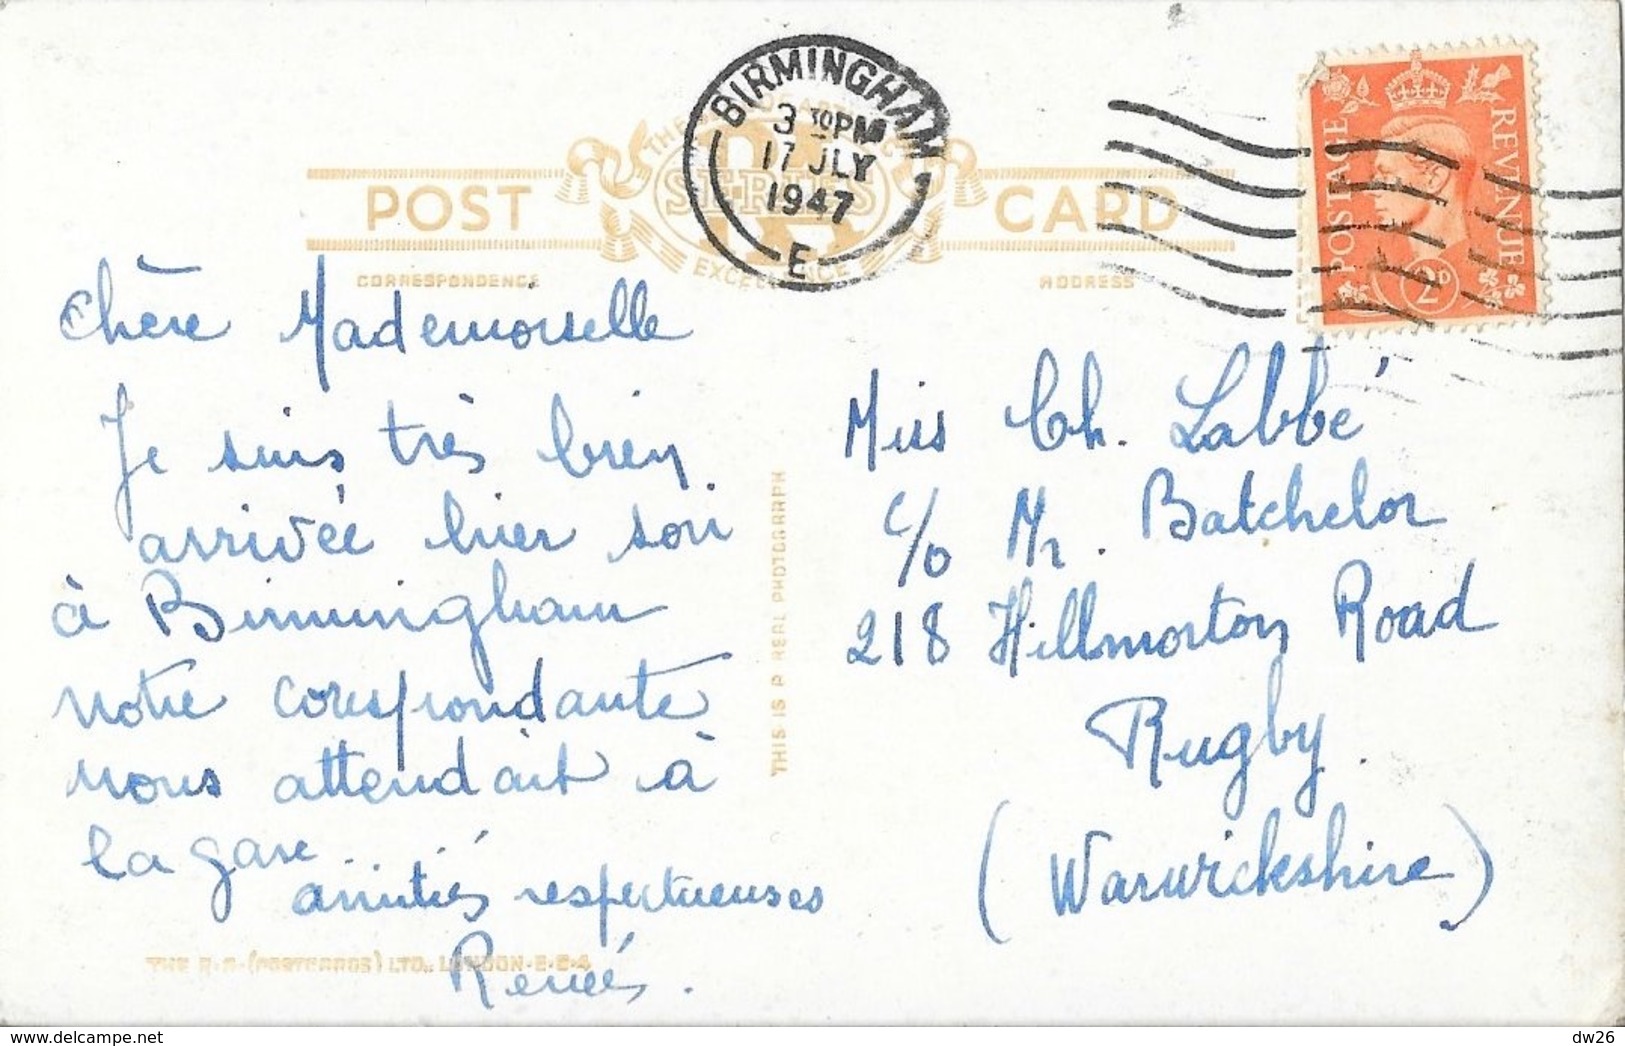 BIRMINGHAM
3 30PM
17 JLY
1947
E
POSTAGE
REVENUE
2D
POST CARD
SERIES
EXCELLENCE
CORRESPONDENCE
ADDRESS
Chère Mademoiselle
Je suis très bien
arrivée hier soir
à Birmingham
notre correspondante
nous attendait à
la gare
amitiés respectueuses
Renée.
THIS IS A REAL PHOTOGRAPH
Miss Ch. Labbé
c/o Mr. Batchelor
218 Hillmorton Road
Rugby.
(Warwickshire)
THE R.A. (POSTCARDS) LTD., LONDON. E.C.4
dw26